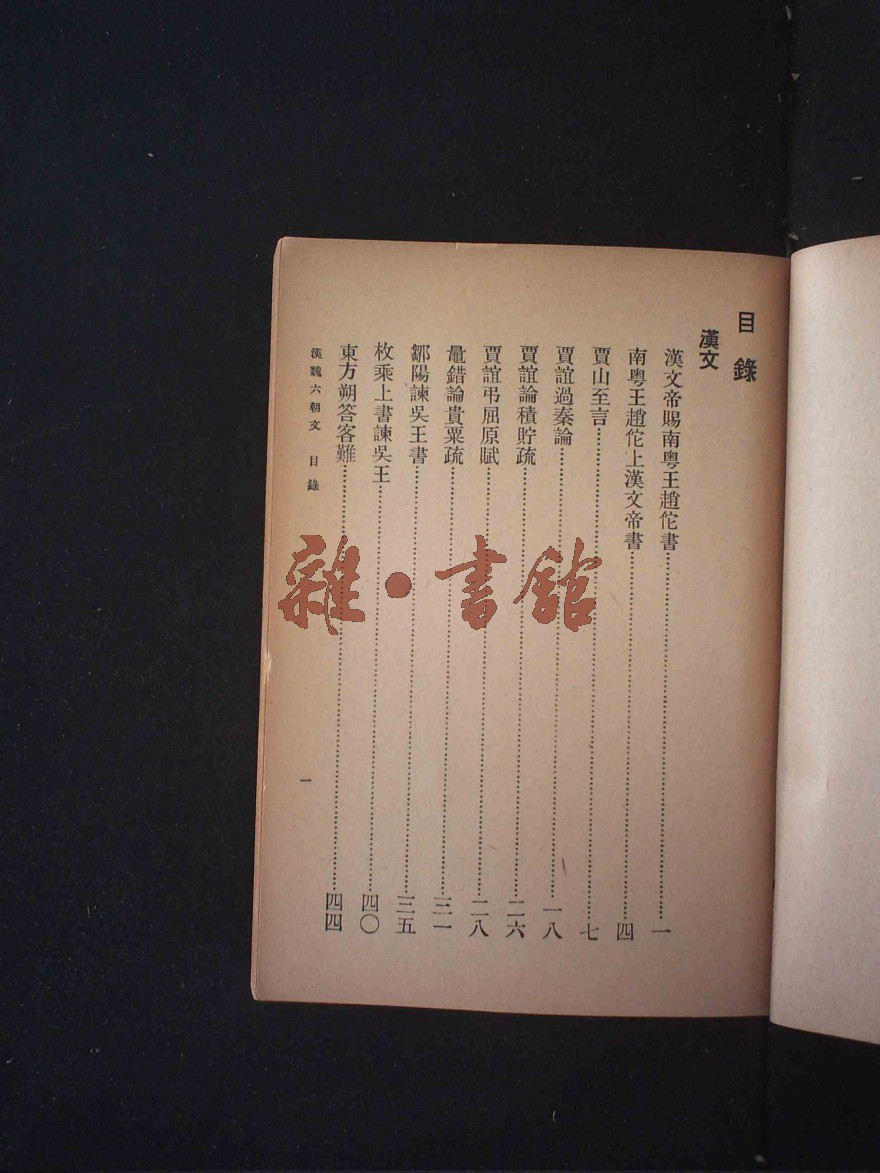 目錄
漢文
漢文帝賜南粵王趙佗書⋯⋯一
南粵王趙佗上漢文帝書⋯⋯四
賈山至言⋯⋯七
賈誼過秦論⋯⋯一八
賈誼論積貯疏⋯⋯二六
賈誼弔屈原賦⋯⋯二八
鼂錯論貴粟疏⋯⋯三一
鄒陽諫吳王書⋯⋯三五
枚乘上書諫吳王⋯⋯四〇
東方朔答客難⋯⋯四四
漢魏六朝文 目錄
一
雜·書館